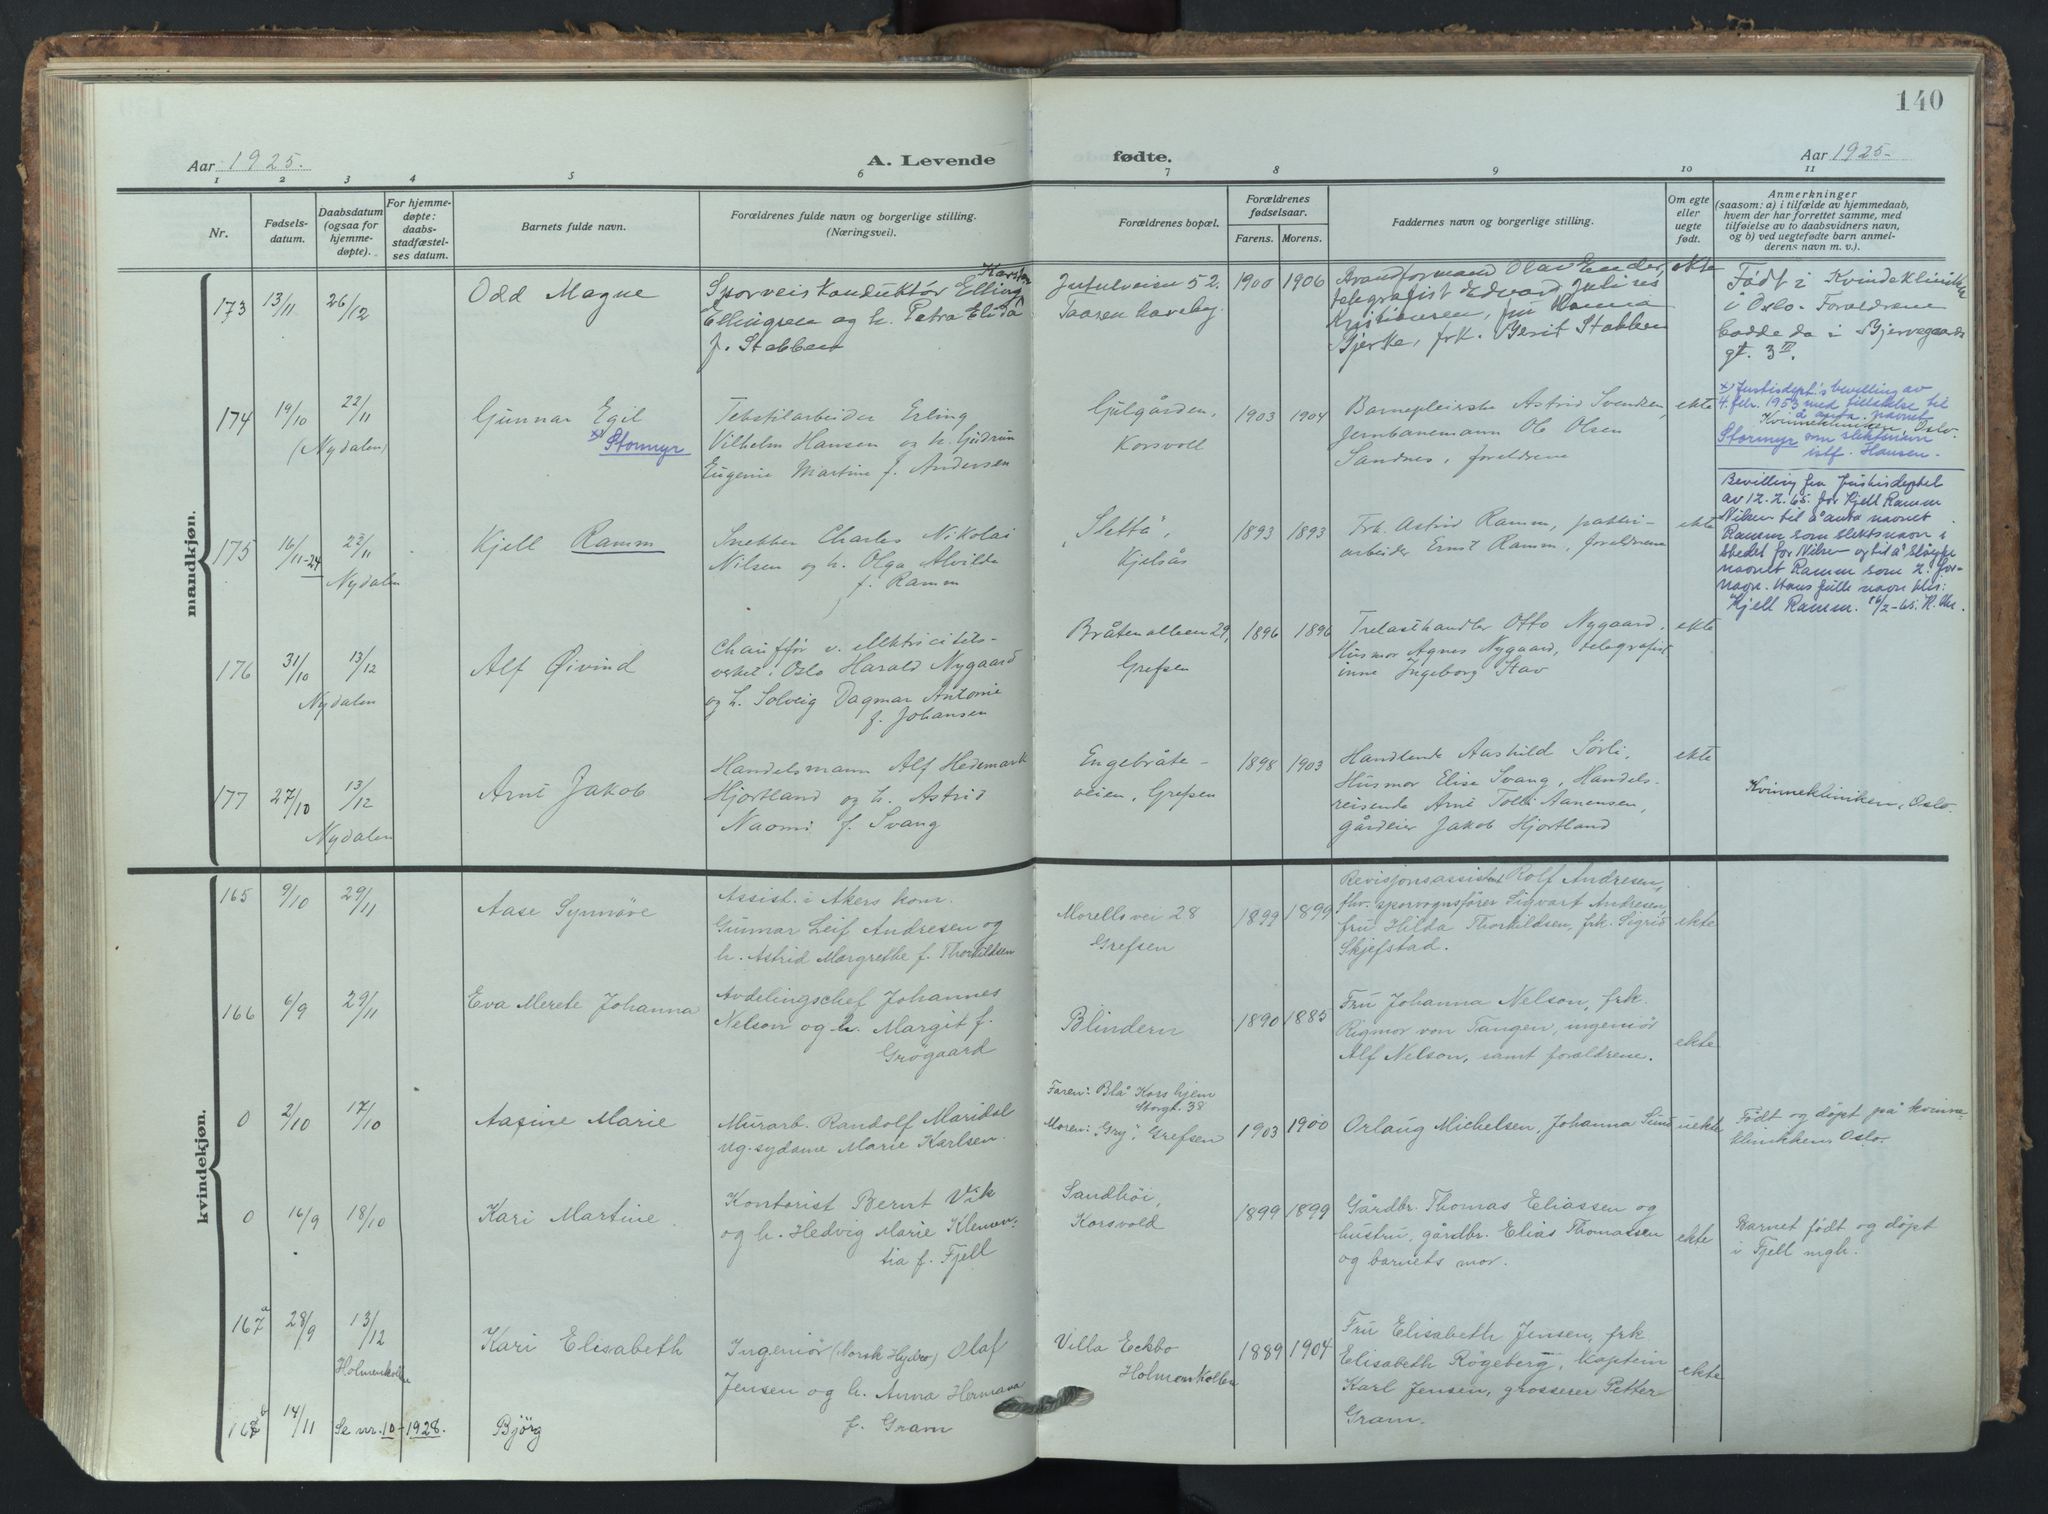 140
Aar 1925.
A. Levende
fødte.
Aar 1925-
1 2 3 4 5 6 7 8 9 10 11
Nr.
Fødsels-
datum.
Daabsdatum
(ogsaa for
hjemme-
døpte).
For hjemme-
døpte:
daabs-
stadfæstel-
ses datum.
Barnets fulde navn.
Forældrenes fulde navn og borgerlige stilling.
(Næringsvei).
Forældrenes bopæl.
Forældrenes
fødselsaar.
Farens. Morens.
Faddernes navn og borgerlige stilling.
Om egte
eller
uegte
født.
Anmerkninger
(saasom: a) i tilfælde av hjemmedaab,
hvem der har forrettet samme, med
tilføielse av to daabsvidners navn,
og b) ved uegtefødte barn anmel-
derens navn m. v.).
mandkjøn.
173
13/11
26/12
Odd Magne
Karsten
Sporveiskonduktør Elling
Ellingsen og h. Petra Elida
f. Stabben
Jutulveien 52.
Taasen haveby.
1900 1906
Brandformand Olav Ender,
telegrafist Edvard Julius
Kristiansen, fru Hanna
Gjerke, frk. Gerit Stabben
ekte
Født i Kvindeklinikken
i Oslo. Forældrene
bodde da i Bjerregaards
gt. 3 II.
174
19/10
22/11
(Nydalen)
Gunnar Egil
x) Stormyr
Tekstilarbeider Erling
Vilhelm Hansen og h. Gudrun
Eugenie Martine f. Andersen
Gjulgården,
Korsvoll
1903 1904
Barnepleierske Astrid Svendsen,
Jernbanemann Ole Olsen
Sandnes, foreldrene
ekte
Kvinnekliniken, Oslo.
x) Justisdept's bevilling av
4. febr. 1953 med tillatelse til
å anta navnet
Stormyr som slektsnavn
istf. Hansen.
175
16/11-24
22/11
Nydalen
Kjell Ramm
Snekker Charles Nikolai
Nilsen og h. Olga Alvilde
f. Ramm
"Sletta",
Kjelsås
1893 1893
Frk. Astrid Ramm, fabri-
arbeider Ernst Ramm, foreldrene
ekte
Bevilling fra Justisdeptet
av 12.2.65 for Kjell Ramm
Nilsen til å anta navnet
Ramm som slektsnavn i
stedet for Nilsen og til å sløyfe
navnet Ramm som 2. for-
navn. Hans fulle navn blir:
Kjell Ramm. 16/2-65.
176
31/10
13/12
Nydalen
Alf Øivind
Chauffør v. elektricitets-
verket i Oslo Harald Nygaard
og h. Solveig Dagmar Antonie
f. Johansen
Bråtenalleen 29,
Grefsen
1896 1896
Trelasthandler Otto Nygaard,
Husmor Agnes Nygaard, telegrafist
inne Ingeborg Stav
ekte
177
27/10
13/12
Nydalen
Arne Jakob
Handelsmann Alf Hedemark
Hjortland og h. Astrid
Naomi f. Svang
Engebråte-
veien, Grefsen
1898 1903
Handlende Aashild Sørli,
Husmor Elise Svang, Handels-
reisende Arne Tolli Aanensen,
gårdeier Jakob Hjortland
ekte
Kvinnekliniken, Oslo.
kvindekjøn.
165
9/10
29/11
Aase Synnöve
Assist. i Akers kom.
Gunnar Leif Andresen og
h. Astrid Margrethe f. Thorkildsen
Morells vei 28
Grefsen
1899 1899
Revisjonsassistent Rolf Andresen,
fhv. sporvognsfører Sigvart Andresen,
fru Hilda Thorkildsen, frk. Sigrid
Skjefstad.
ekte
166
6/9
29/11
Eva Merete Johanna
Avdelingschef Johannes
Nelson og h. Margit f.
Grøgaard
Blindern
1890 1885
Fru Johanna Nelson, frk.
Rigmor von Tangen, ingeniør
Alf Nelson, samt foreldrene.
ekte
0
2/10
17/10
Aasine Marie
Murarb. Randolf Maridal
ug. sydame Marie Karlsen.
Faren: Blå Kors hjem
Storgt. 38
Moren: "Gry", Grefsen
1903 1900
Orlaug Michelsen, Johanna Sund
uekte
Født og døpt på kvinne-
klinikken, Oslo.
0
16/9
18/10
Kari Martine
Kontorist Bernt Vik
og h. Hedvig Marie Klemen-
tia f. Fjell
Sandhöi,
Korsvold
1899 1899
Gårdbr. Thomas Eliassen og
hustru, gårdbr. Elias Thomassen
og barnets mor.
ekte
Barnet født og døpt
i Fjell mgh.
167a
28/9
13/12
Holmenkollen
Kari Elisabeth
Ingeniør (Norsk Hydro) Olaf
Jensen og h. Anna Hermana
f. Gram
Villa Eckbo
Holmenkollen
1889 1904
Fru Elisabeth Jensen, frk
Elisabeth Røgeberg, Kaptein
Karl Jensen, grosserer Petter
Gram.
ekte
167b
14/11
Se nr. 10-1928.
Bjørg